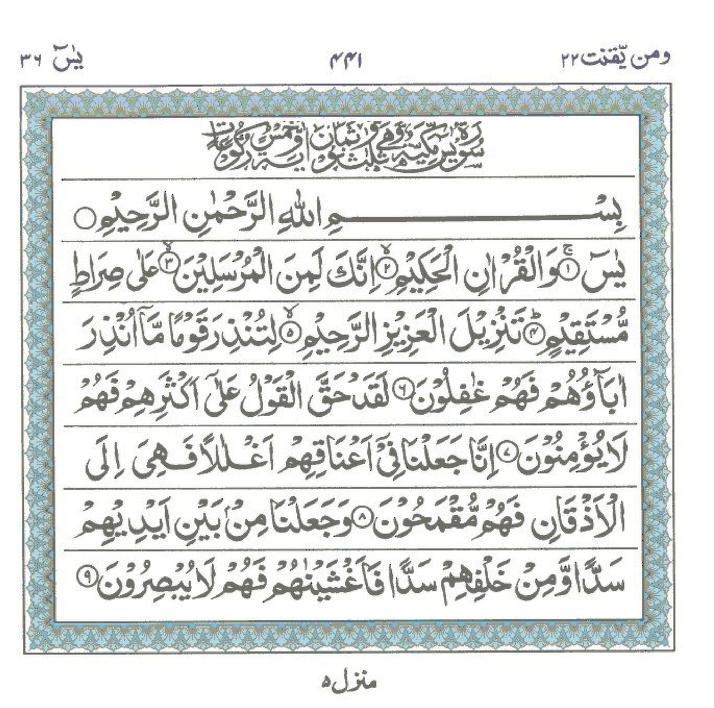 ومن یّقنت ۲۲ ۴۴۱ یٰسٓ ۳۶
سورة یٰسٓ مکیة وهی ثلث وثمانون اٰیة وخمس رکوعات
بِسْمِ اللهِ الرَّحْمٰنِ الرَّحِيْمِ
يٰسٓ ۚ‏﴿۱﴾ وَالْقُرْاٰنِ الْحَكِيْمِ ۙ‏﴿۲﴾ اِنَّكَ لَمِنَ الْمُرْسَلِيْنَ ۙ‏﴿۳﴾ عَلٰى صِرَاطٍ
مُّسْتَقِيْمٍ ؕ‏﴿۴﴾ تَنْزِيْلَ الْعَزِيْزِ الرَّحِيْمِ ۙ‏﴿۵﴾ لِتُنْذِرَ قَوْمًا مَّاۤ اُنْذِرَ
اٰبَآؤُهُمْ فَهُمْ غٰفِلُوْنَ ﴿۶﴾ لَقَدْ حَقَّ الْقَوْلُ عَلٰٓى اَكْثَرِهِمْ فَهُمْ
لَا يُؤْمِنُوْنَ ﴿۷﴾ اِنَّا جَعَلْنَا فِىْۤ اَعْنَاقِهِمْ اَغْلٰلًا فَهِىَ اِلَى
الْاَذْقَانِ فَهُمْ مُّقْمَحُوْنَ ﴿۸﴾ وَجَعَلْنَا مِنْۢ بَيْنِ اَيْدِيْهِمْ
سَدًّا وَّمِنْ خَلْفِهِمْ سَدًّا فَاَغْشَيْنٰهُمْ فَهُمْ لَا يُبْصِرُوْنَ ﴿۹﴾
منزل ۵